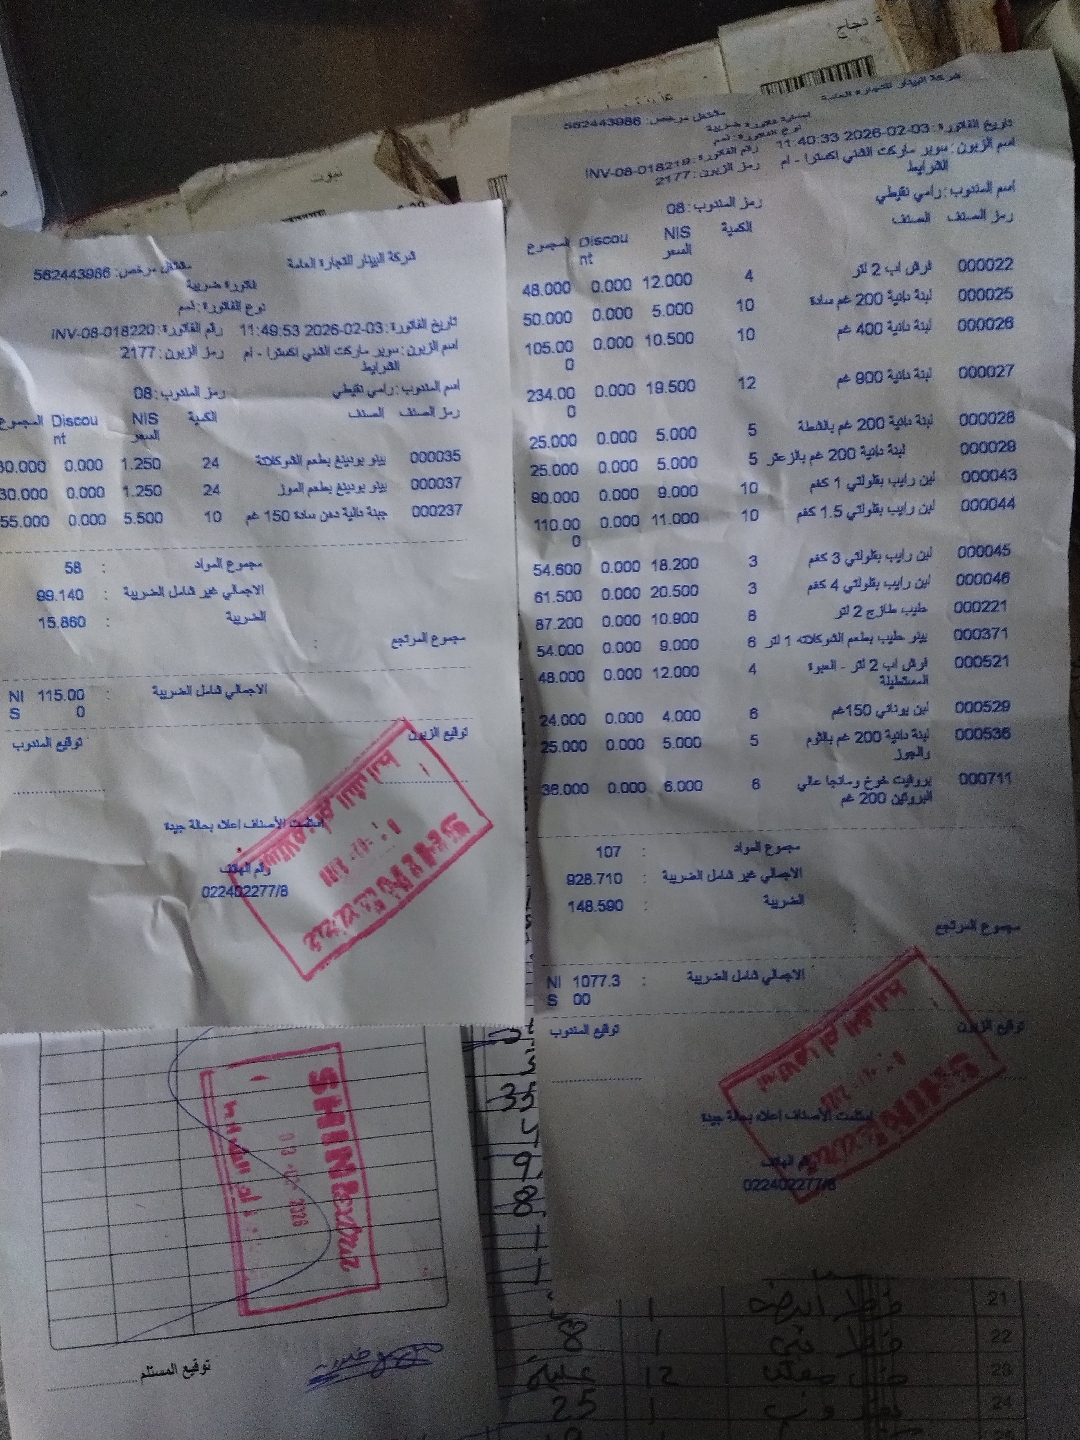 شركة البينار للتجارة العامة مشتغل مرخص: 562443986
فاتورة ضريبية
نوع الفاتورة : ذمم
تاريخ الفاتورة : 03-02-2026 11:49:53 رقم الفاتورة : INV-08-018220
اسم الزبون : سوبر ماركت الشني اكسترا - ام الشرايط رمز الزبون : 2177
اسم المندوب : رامي نقيطي رمز المندوب : 08
رمز الصنف الصنف الكمية NIS السعر Discount المجموع
000035 بينو بودينغ بطعم الشوكلاتة 24 1.250 0.000 30.000
000037 بينو بودينغ بطعم الموز 24 1.250 0.000 30.000
000237 جبنة دالية دهن سادة 150 غم 10 5.500 0.000 55.000
مجموع المواد : 58
الاجمالي غير شامل الضريبة : 99.140
الضريبة : 15.860
مجموع المرتجع :
الاجمالي شامل الضريبة 115.000 NIS
توقيع الزبون توقيع المندوب
استلمت الأصناف اعلاه بحالة جيدة
رقم الهاتف
022402277/8
شركة البينار للتجارة العامة مشتغل مرخص: 562443986
فاتورة ضريبية
نوع الفاتورة : ذمم
تاريخ الفاتورة : 03-02-2026 11:40:33 رقم الفاتورة : INV-08-018219
اسم الزبون : سوبر ماركت الشني اكسترا - ام الشرايط رمز الزبون : 2177
اسم المندوب : رامي نقيطي رمز المندوب : 08
رمز الصنف الصنف الكمية NIS السعر Discount المجموع
000022 فرش اب 2 لتر 4 12.000 0.000 48.000
000025 لبنة دانية 200 غم سادة 10 5.000 0.000 50.000
000026 لبنة دانية 400 غم 10 10.500 0.000 105.000
000027 لبنة دانية 900 غم 12 19.500 0.000 234.000
000028 لبنة دانية 200 غم بالشطة 5 5.000 0.000 25.000
000029 لبنة دانية 200 غم بالزعتر 5 5.000 0.000 25.000
000043 لبن رايب بقلولتي 1 كغم 10 9.000 0.000 90.000
000044 لبن رايب بقلولتي 1.5 كغم 10 11.000 0.000 110.000
000045 لبن رايب بقلولتي 3 كغم 3 18.200 0.000 54.600
000046 لبن رايب بقلولتي 4 كغم 3 20.500 0.000 61.500
000221 حليب طازج 2 لتر 8 10.900 0.000 87.200
000371 بينو حليب بطعم الشوكلاته 1 لتر 6 9.000 0.000 54.000
000521 فرش اب 2 لتر - العبوة المستطيلة 4 12.000 0.000 48.000
000529 لبن يوناني 150غم 6 4.000 0.000 24.000
000536 لبنة دانية 200 غم بالثوم والجوز 5 5.000 0.000 25.000
000711 بروفيت خوخ ومانجا عالي البروتين 200 غم 6 6.000 0.000 36.000
مجموع المواد : 107
الاجمالي غير شامل الضريبة : 928.710
الضريبة : 148.590
مجموع المرتجع :
الاجمالي شامل الضريبة : 1077.300 NIS
توقيع الزبون توقيع المندوب
استلمت الأصناف اعلاه بحالة جيدة
رقم الهاتف
022402277/8
SHINI Extra
توقيع المستلم
33
9
8
21 1
22 1 8
23 12
24 1 25